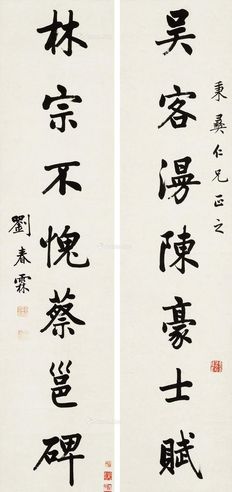 秉彝仁兄正之
吴客漫陳豪士賦
林宗不愧蔡邕碑
劉春霖